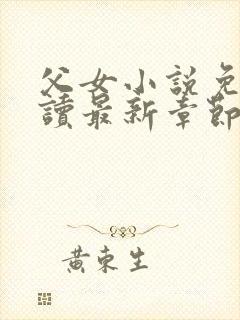 父女小說免
讀最新章節
黃東生